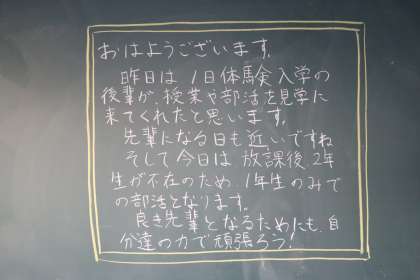 おはようございます。
昨日は１日体験入学の
後輩が、授業や部活を見学に
来てくれたと思います。
先輩になる日も近いですね
そして今日は放課後、2年
生が不在のため、1年生のみで
の部活となります。
良き先輩となるためにも、自
分達の力で頑張ろう!